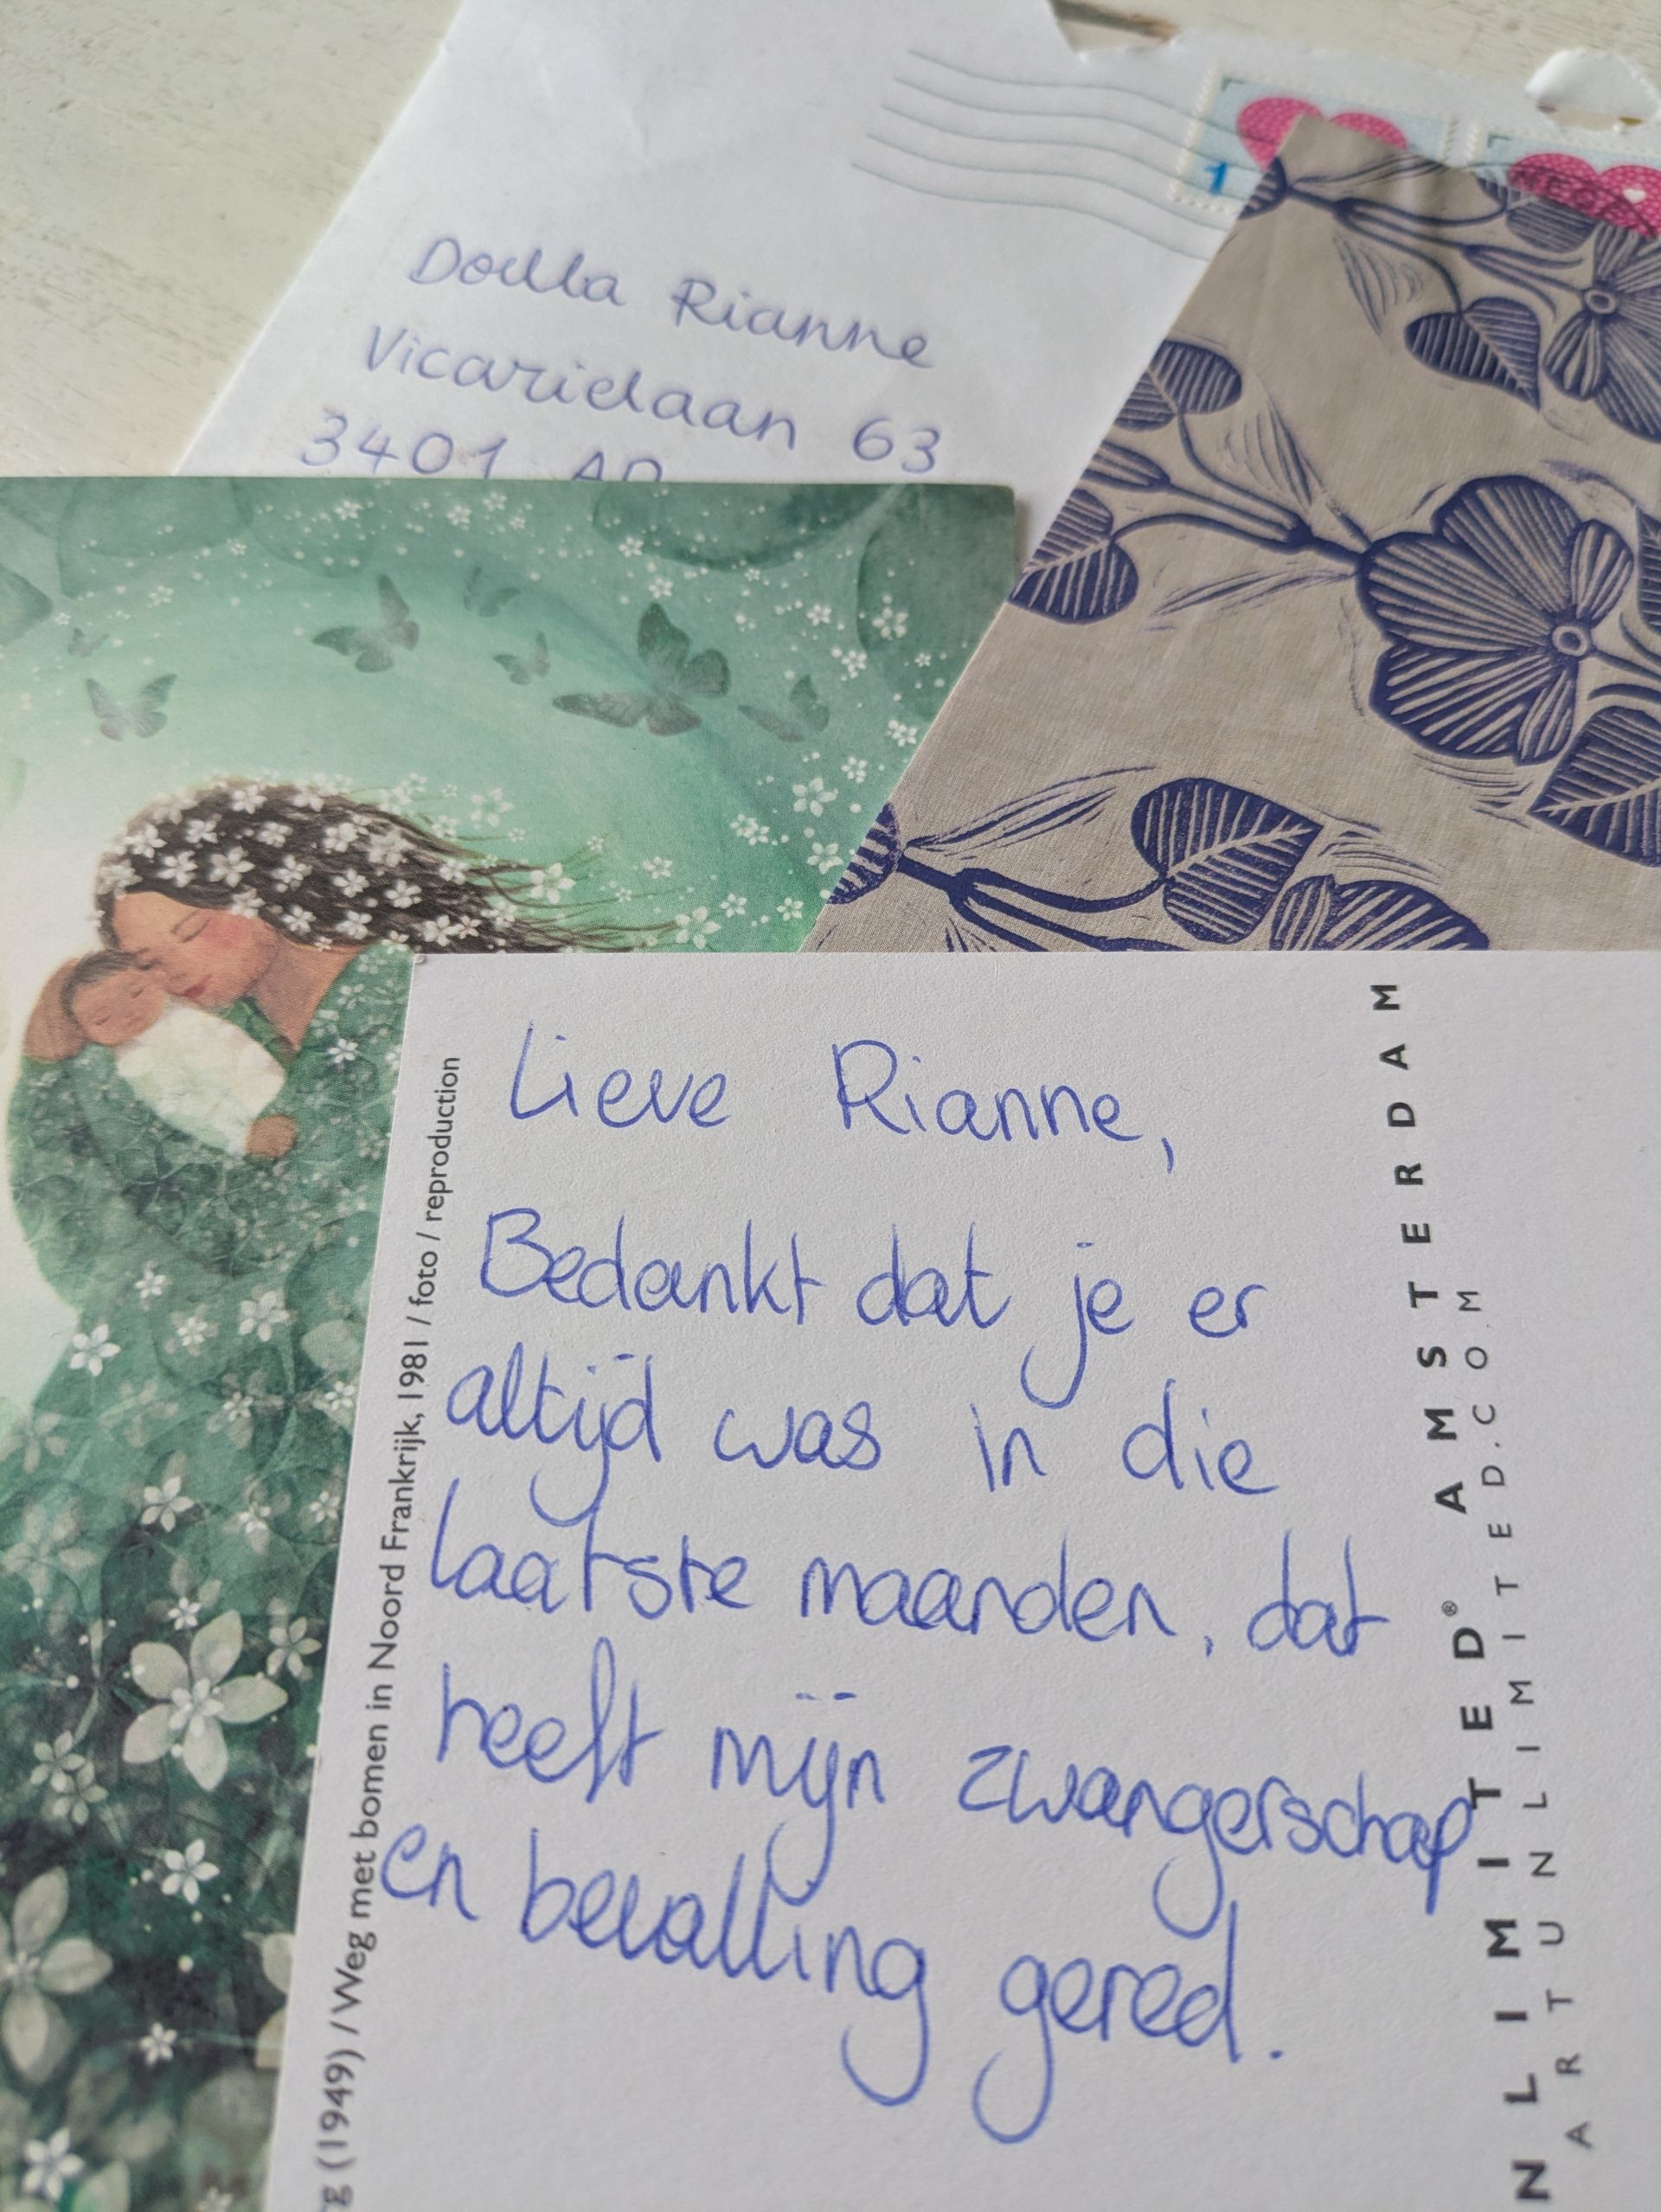 1
Doella Rianne
Vicarielaan 63
3401 AP
Lieve Rianne,
Bedankt dat je er
altijd was in die
laatste maanden, dat
heeft mijn zwangerschap
en bevalling gered.
(1949) / Weg met bomen in Noord Frankrijk, 1981 / foto / reproduction
NLIMITED® AMSTERDAM
ARTUNLIMITED.COM